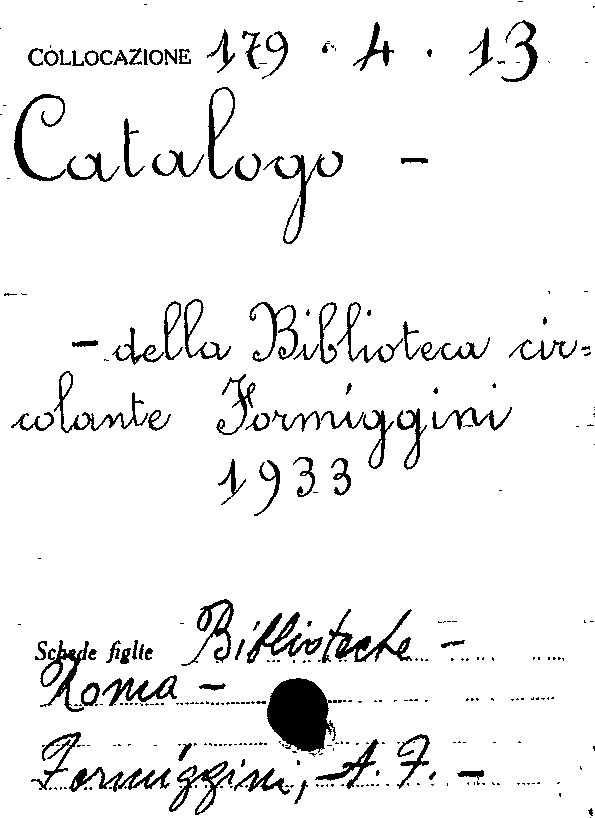 COLLOCAZIONE 179 . 4 . 13
Catalogo -
- della Biblioteca cir=
colante Formiggini
1933
Schede figlie Biblioteche -
Roma -
Formiggini, A. F. -